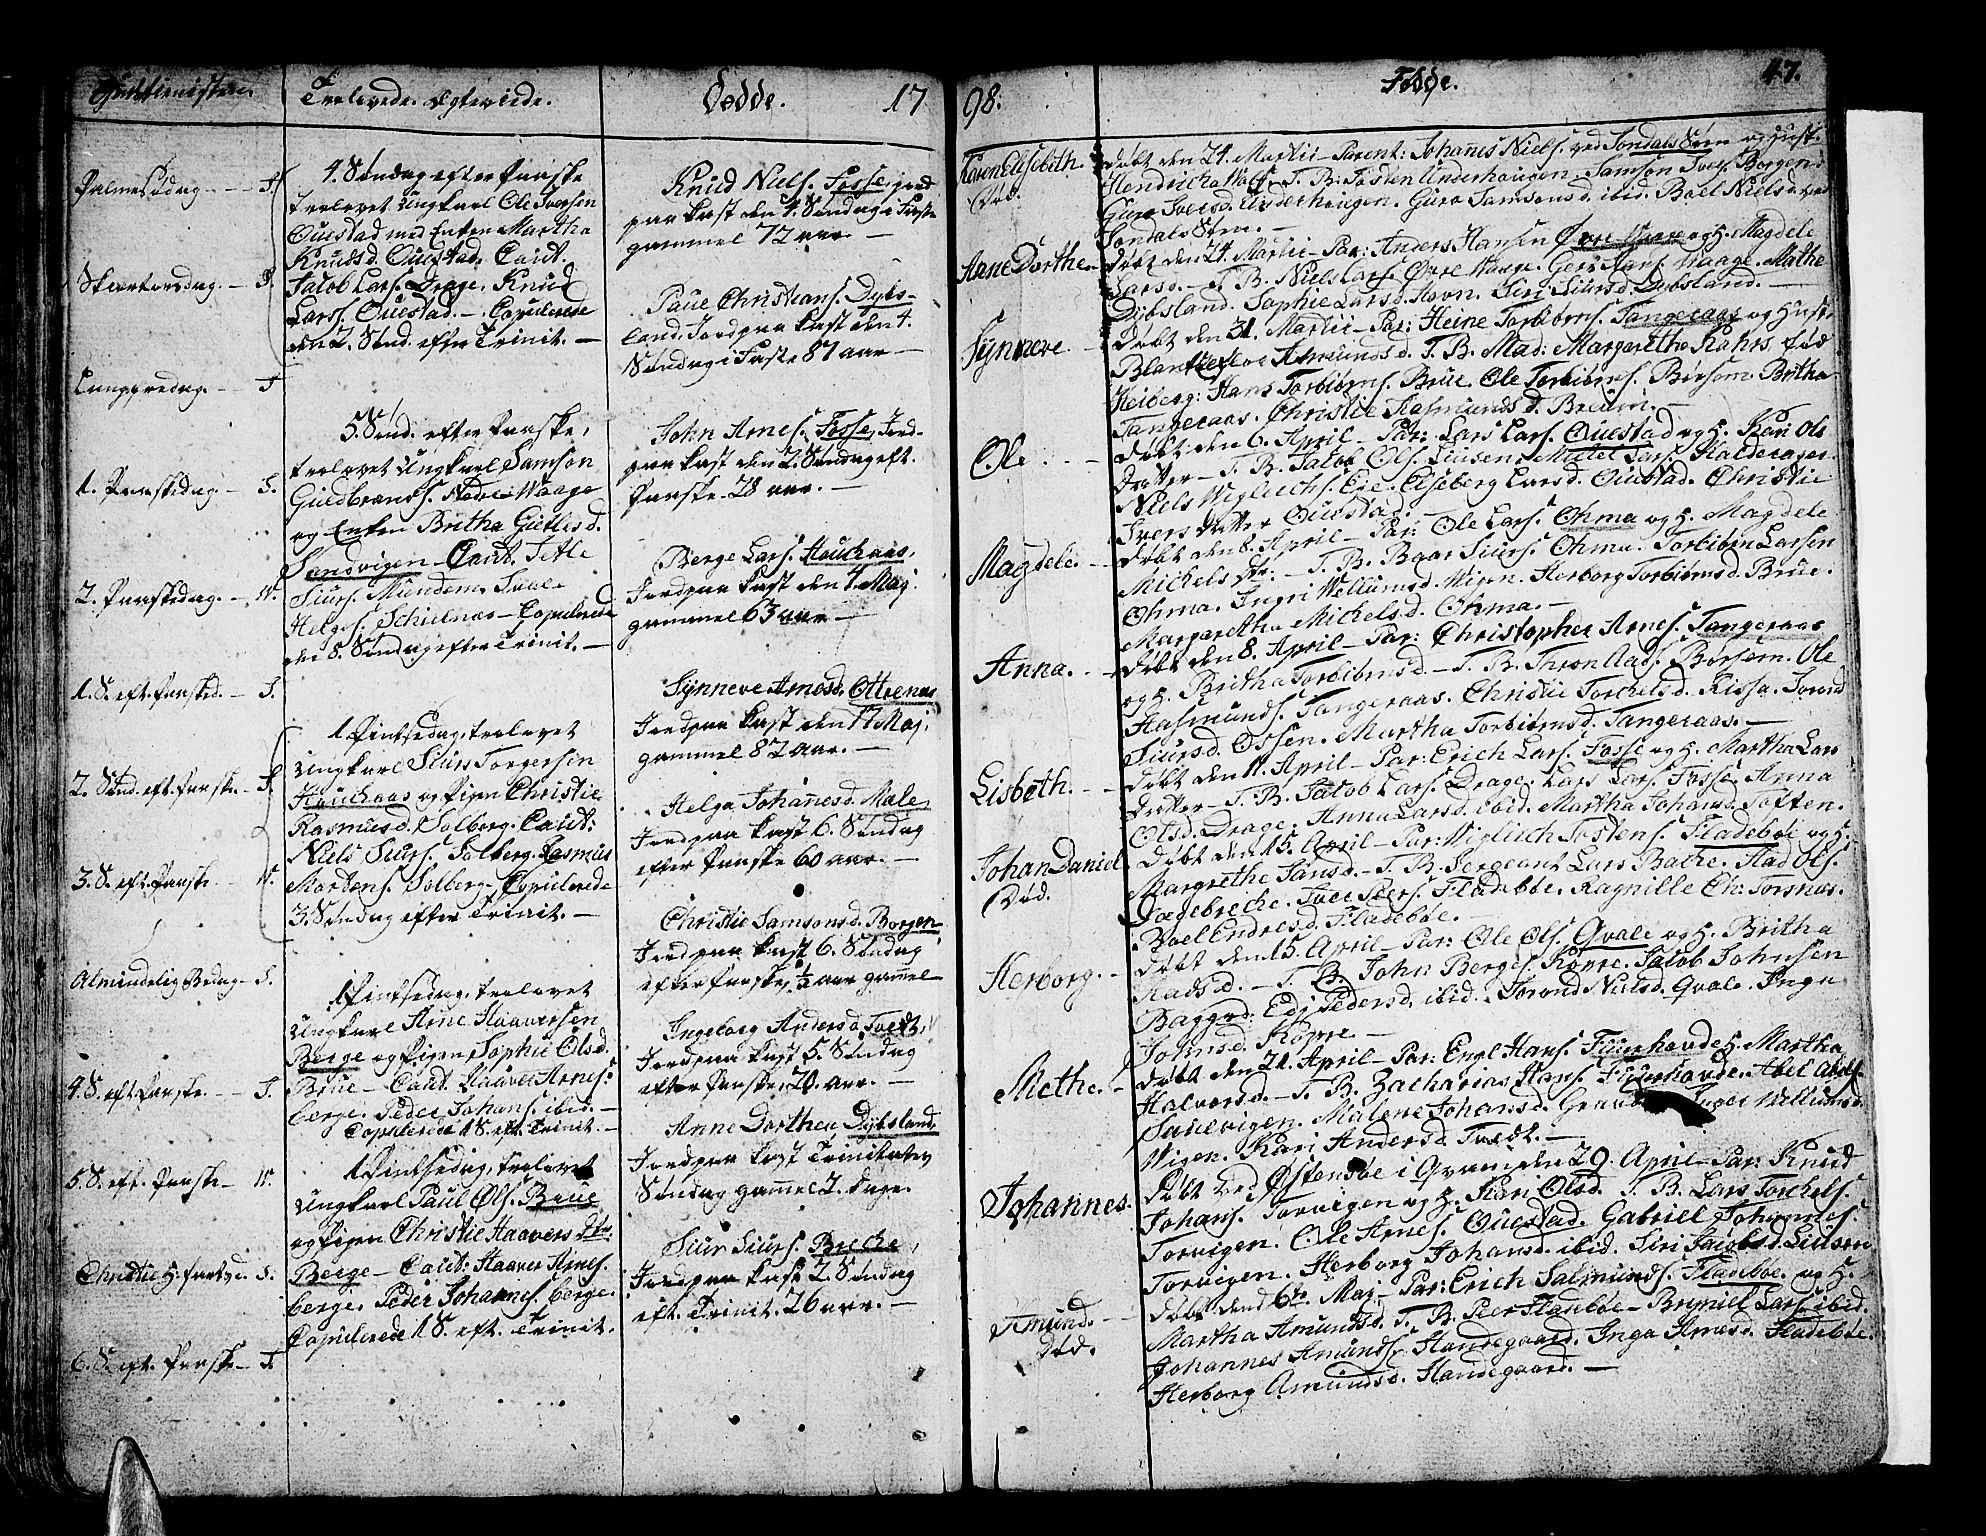 Trolovede. Ægteviede.
Dødde.
17
98.
Fødde.
47.
Palmesødag. — S.
Skiærtorsdag. — S.
Langfredag. — S
1. Paaskedag. — S.
2. Paaskedag. — W.
1. S. eft. Paasked. — S.
2. Sønd. eft. Paaske. — S.
3. S. eft. Paaske. — W.
Almindelig Bededag — S.
4. S. eft. Paaske. — S.
5. S. eft. Paaske — W.
Christi H: fartsd. S.
6. S. eft. Paaske — S.
4. Søndag efter Paaske
trolovet Ungkarl Ole Iversen
Ouestad med Enken Martha
Knudsd. Ouestad. Caut.
Jacob Lars. Drage. Knud
Larss. Ouestad. — Copulerede
den 2. Sønd. efter Trinit. —
5. Sønd. efter Paaske,
trolovet Ungkarl Samson
Guldbrands. Nedre Waage
og Enken Britha Gietlesd.
Sandvigen — Caut. Tetle
Siurs. Mundem.
Helges. Schielnæs — Copulerede
den 8. Søndag efter Trinit. —
1 Pintsedag, trolovet
Ungkarl Siurs Torgersen
Hauchaas og Pigen Christie
Rasmusd. Solberg. Caut:
Niels Siurs. Solberg. Rasmus
Mortens. Solberg — Copulerede
3. Søndag efter Trinit. —
1 Pintsedag, trolovet
Ungkarl Arne Haaversen
Berge og Pigen Sophie Olsd.
Brue — Caut. Haaver Arnes:
berge. Peder Johans. ibid. —
Copulerede 1 S. eft. Trinit. —
1 Pintsedag, trolovet
Ungkarl Paul Ols. Brue
og Pigen Christie Haavers Dtr:
Berge — Caut: Haaver Arnes.
berge. Peder Johannes. berge.
Copulerede 1 S. eft. Trinit.
Knud Niels. Fosse, jord
paa kast den 4. Søndag i Faste
gammel 72 aar. —
Paul Christians. Dybs-
land. Jordpaa kast den 4.
Søndag i Faste 87 aar —
John Arnes. Fosse, Jord-
paa kast den 2. Søndag eft.
Paaske. 28 aar. —
Berge Lars. Hauchaas,
Jordpaa kast den 4. Maj.
gammel 63 aar —
Synneve Arnesd. Ottrenæs
Jordpaa kast den 17 Maj.
gammel 82 aar. —
Helga Johanesd. Male,
Jordpaa kast 6. Søndag
efter Paaske 60 aar. —
Christie Samsonsd. Borgen
Jordpaa kast 6. Søndag
efter Paaske, ½ aar gammel —
Ingeborg Andersd. Tvedt,
Jordpaa kast 5. Søndag
efter Paaske, 20. aar. —
Anne Dorthea Dybsland,
Jordpaa kast Trinitates
Søndag gammel 2. dage.
Siur Siurs. Breche,
Jordpaa kast 2. Søndag
eft. Trinit. 26 aar. —
Karen Elsebeth.
Død.
Døbt den 24. Martii — Parent: Johanes Niels. ved Sondals Øren og Hust.
Guro Iversd. Underhougen. Guro Samsonsd. ibid. Boel Nielsd. ved
Sondals Øren. —
Anne Dorthe.
Døbt den 24. Martii — Par: Anders Hansen Øvre Waage og H. Magdele
Larsd. — T. B. Niels Lars. Øvre Waage. Waage. Mathe
Dybsland. Sophie Larsd. Siri Siursd. Dybsland. —
Synneve
Døbt den 31. Martii — Par: Heine Torbiørns. Tangeraas og Hust.
Amundsd. T. B. Mad: Margarethe Rahrs fød
Heiberg: Hans Torbiørns. Brue. Ole Torbiørns. Børsem. Britha
Tangeraas. Christie Rasmunds d.
Ole.
Døbt den 6. April — Par: Lars Lars. Ouestad og H. Kari Ols
Datter — T. B. Jacob Ols. Liusen. Haldorager.
Niels Wiglechs. Eje. Elseberg Larsd. Ouestad. Christie
Ivers datter Ouestad. —
Magdele.
Døbt den 8. April — Par: Ole Lars. Ohma og H. Magdele
Michels Dtr. — T. B. Baar Siurs. Ohma. Torbiørn Larsen
Ohma. Ingri Wellumsd. Wiin. Herborg Torbiørnsd. Brue.
Margaretha Michelsd. Ohma. —
Anna.
Døbt den 8. April — Par: Christopher Arnes. Tangeraas
og H. Britha Torbiørnsd — T. B. Thron Aads. Børsem. Ole
Rasmunds. Tangeraas. Christie Torchelsd. Rissa. Torond
Siursd. Ossen. Martha Torbiørnsd. Tangeraas. —
Lisbeth.
Døbt den 11. April — Par: Erich Lars. Fosse og H. Martha Lars
Datter — T. B. Jacob Lars. Drage. Lars Lars. Fosse. Anna
Olsd. Drage. Anna Larsd. ibid. Martha Johansd. Toften.
Johan Daniel
Død.
Døbt den 15. April — Par: Wiglech Tostens. Fladebøe og H.
Margrethe Jansd. — T. B. Sergeant Lars Bache. Aad Ols.
Dagebreche. Iver Peers. Fladebøe. Ragnille Ch: Torsnæs.
Boel Endresd. Fladebøe. —
Herborg.
Døbt den 15. April — Par: Ole Ols. Qvale og H. Britha
Aadsd. — T. B. John Berges. Røpre. Jacob Johnsen
Baggrd: Peders d. ibid. Torond Nielsd. Qvale. Inga
Johnsd. Røpre —
Methe.
Døbt den 21. April — Par: Engl Hans. og H. Martha
Halvorsd. — T. B. Zacharias Hans.
Sauevigen. Malene Johansd. Inger Wellumsd.
Wigen. Kari Andersd. Tvedt. —
Johannes.
Døbt ved Østensøe i Qvam den 29. April — Par: Knud
Johans. Torvigen og H. Kari Olsd. T. B. Lars Torchels.
Torvigen. Ole Arnes. Ouestad. Gabriel Johannes.
Torvigen. Herborg Johansd. ibid. Siri Jacobsd. Liusen
Amund.
Død.
Døbt den 6te Maj — Par: Erich Salmunds. Fladebøe. og H.
Martha Amundsd. T. B. Peer Fladebøe — Bryniel Lars. ibid.
Johannes Amunds. Handegaard. Inga Arnesd. Fladebøe.
Herborg Amundsd. Handegaard. —